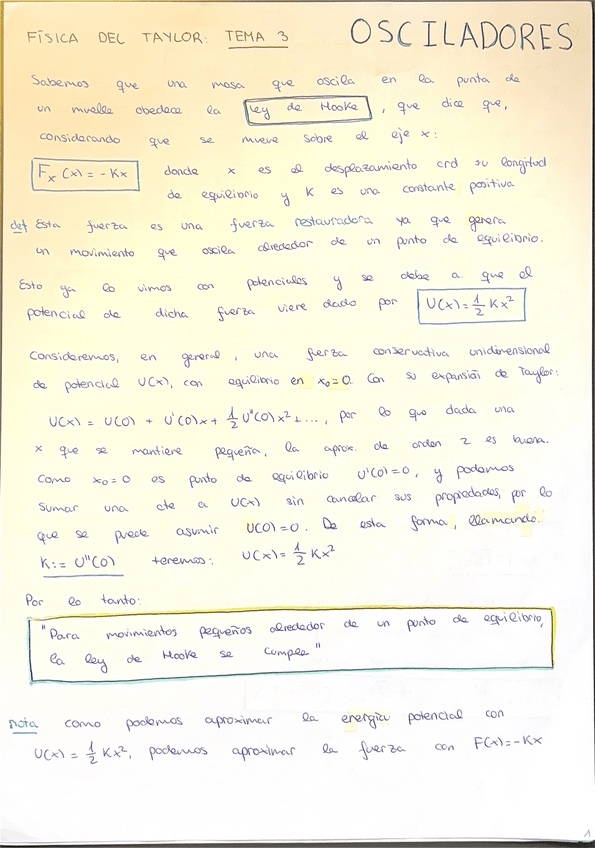 FÍSICA DEL TAYLOR: TEMA 3 OSCILADORES
Sabemos que una masa que oscila en la punta de
un muelle obedece la ley de Hooke, que dice que,
considerando que se mueve sobre el eje x:
Fₓ(x) = -Kx donde x es el desplazamiento crd su longitud
de equilibrio y K es una constante positiva
def Esta fuerza es una fuerza restauradora ya que genera
un movimiento que oscila alrededor de un punto de equilibrio.
Esto ya lo vimos con potenciales y se debe a que el
potencial de dicha fuerza viene dado por U(x) = 1/2 Kx²
Consideremos, en general, una fuerza conservativa unidimensional
de potencial U(x), con equilibrio en x₀=0. Con su expansión de Taylor:
U(x) = U(0) + U'(0)x + 1/2 U''(0)x² + ..., por lo que dada una
x que se mantiene pequeña, la aprox. de orden 2 es buena.
Como x₀=0 es punto de equilibrio U'(0)=0, y podemos
sumar una cte a U(x) sin cancelar sus propiedades, por lo
que se puede asumir U(0)=0. De esta forma, llamando
K:= U''(0) tenemos: U(x) = 1/2 Kx²
Por lo tanto:
"Para movimientos pequeños alrededor de un punto de equilibrio,
la ley de Hooke se cumple"
nota como podemos aproximar la energía potencial con
U(x) = 1/2 Kx², podemos aproximar la fuerza con F(x)=-Kx
1